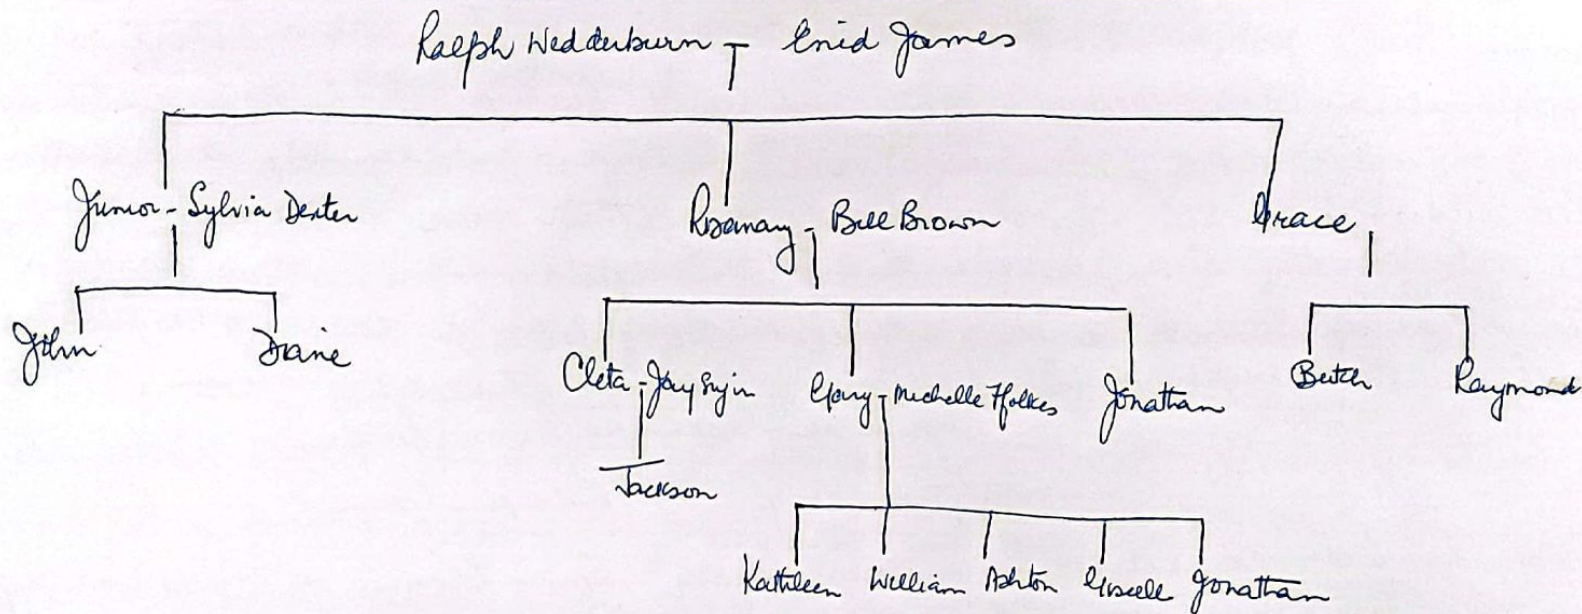 Ralph Wedderburn - Enid James
Junior - Sylvia Dexter Rosemary - Bill Brown Grace
John Diane Cleta - Jay Gary - Michelle Jonathan Butch Raymond
Jackson
Kathleen William Ashton Giselle Jonathan